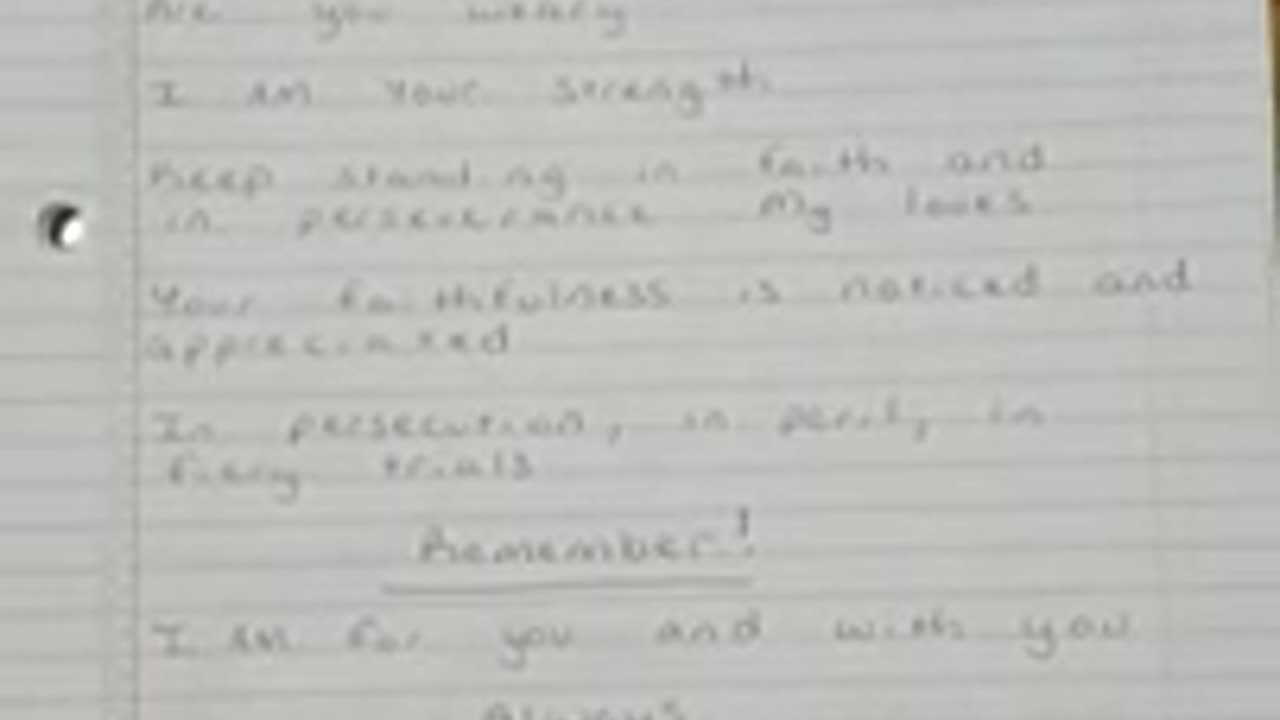 Are you weary
I AM Your Strength
Keep standing in faith and
in perseverance My loves
Your faithfulness is noticed and
appreciated
In persecution, in peril, in
fiery trials
Remember!
I AM for you and with you
Always